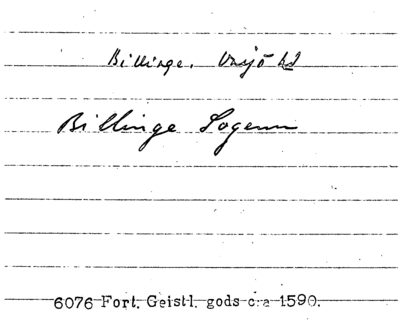 Billinge. Onsjö hd
Billinge Sogenn
6076 Fort. Geistl. gods c:a 1590.